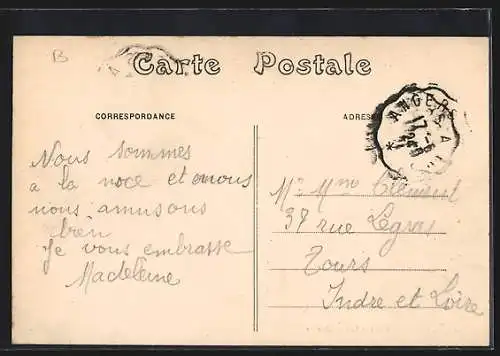 B
Carte Postale
CORRESPONDANCE
ADRES
ANGERS A
17-6
Nous sommes
a la noce et nous
nous amusons
bien
Je vous embrasse
Madeleine
Mr Mme Clement
37 rue
Tours
Indre et Loire